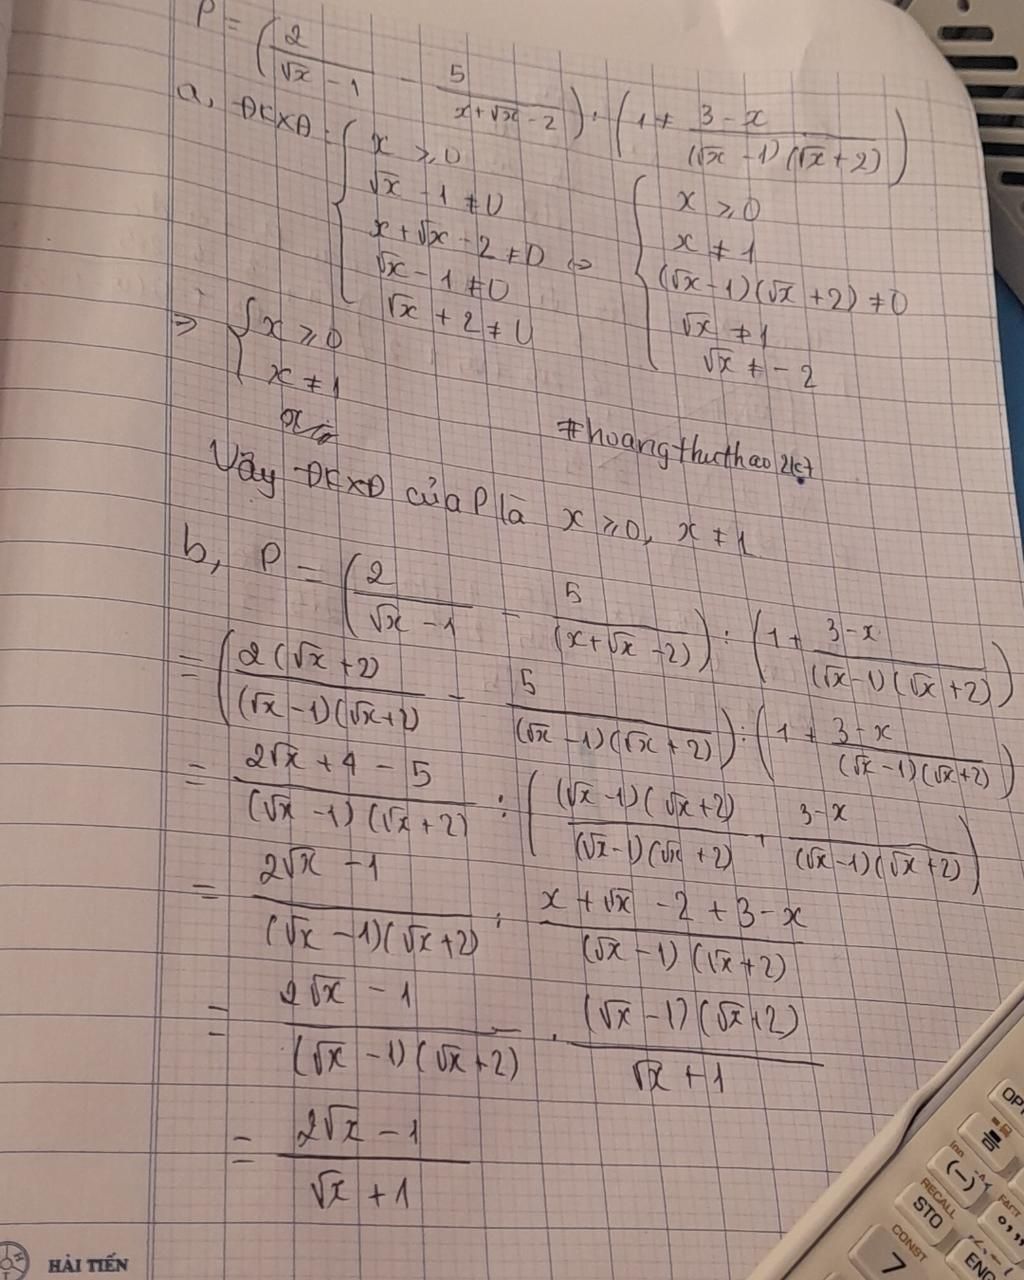 P = (2/(√x - 1) - 5/(x+√x - 2)) : (1 + (3 - x)/((√x - 1)(√x + 2)))
a, ĐKXĐ: { x ≥ 0
√x - 1 ≠ 0
x + √x - 2 ≠ 0
√x - 1 ≠ 0
√x + 2 ≠ 0
⇔ { x ≥ 0
x ≠ 1
(√x - 1)(√x + 2) ≠ 0
√x ≠ 1
√x ≠ - 2
⇒ { x ≥ 0
x ≠ 1
#hoangthuthao2k7
Vậy ĐKXĐ của P là x ≥ 0, x ≠ 1
b, P = (2/(√x - 1) - 5/(x + √x - 2)) : (1 + (3 - x)/((√x - 1)(√x + 2)))
= (2(√x + 2)/((√x - 1)(√x + 2)) - 5/((√x - 1)(√x + 2))) : (1 + (3 - x)/((√x - 1)(√x + 2)))
= (2√x + 4 - 5)/((√x - 1)(√x + 2)) : ((√x - 1)(√x + 2)/((√x - 1)(√x + 2)) + (3 - x)/((√x - 1)(√x + 2)))
= (2√x - 1)/((√x - 1)(√x + 2)) : (x + √x - 2 + 3 - x)/((√x - 1)(√x + 2))
= (2√x - 1)/((√x - 1)(√x + 2)) . (√x - 1)(√x + 2)/(√x + 1)
= (2√x - 1)/(√x + 1)
HẢI TIẾN
OPT
(-)
FACT
RECALL
STO
ENG
CONST
7